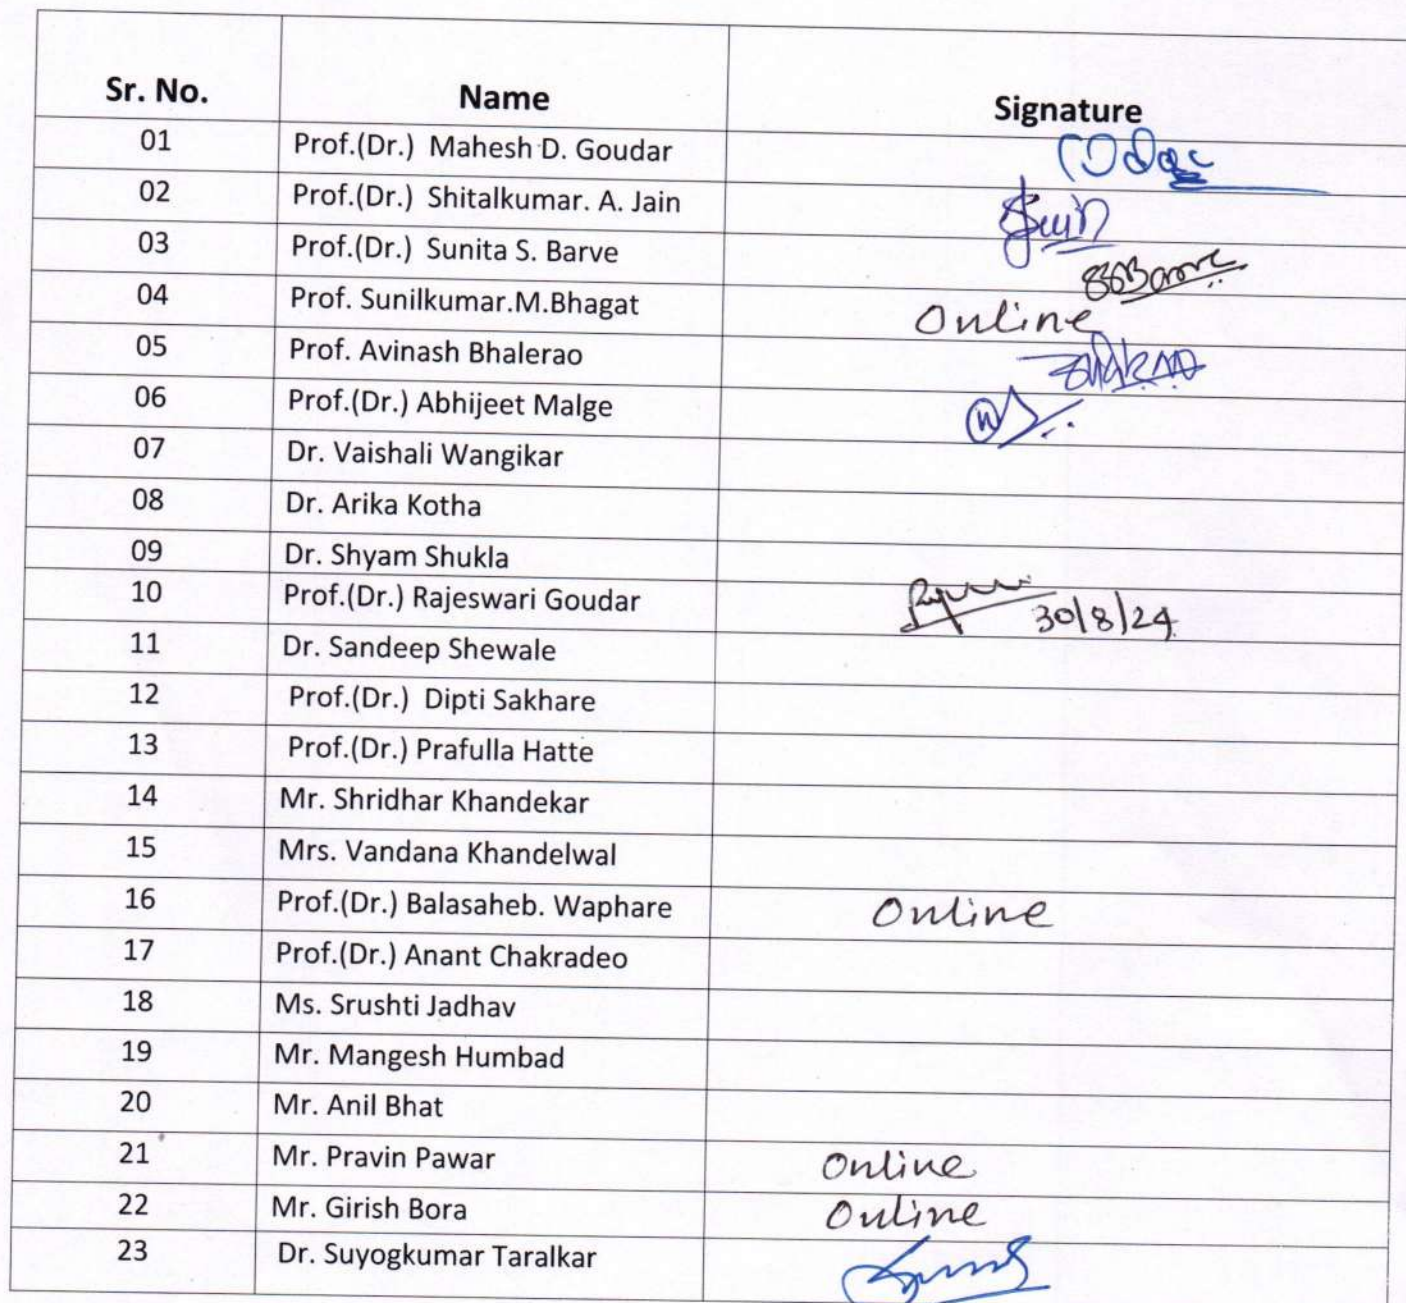 Sr. No. Name Signature
01 Prof.(Dr.) Mahesh D. Goudar
02 Prof.(Dr.) Shitalkumar. A. Jain
03 Prof.(Dr.) Sunita S. Barve
04 Prof. Sunilkumar.M.Bhagat Online
05 Prof. Avinash Bhalerao
06 Prof.(Dr.) Abhijeet Malge
07 Dr. Vaishali Wangikar
08 Dr. Arika Kotha
09 Dr. Shyam Shukla
10 Prof.(Dr.) Rajeswari Goudar 30/8/24
11 Dr. Sandeep Shewale
12 Prof.(Dr.) Dipti Sakhare
13 Prof.(Dr.) Prafulla Hatte
14 Mr. Shridhar Khandekar
15 Mrs. Vandana Khandelwal
16 Prof.(Dr.) Balasaheb. Waphare Online
17 Prof.(Dr.) Anant Chakradeo
18 Ms. Srushti Jadhav
19 Mr. Mangesh Humbad
20 Mr. Anil Bhat
21 Mr. Pravin Pawar Online
22 Mr. Girish Bora Online
23 Dr. Suyogkumar Taralkar